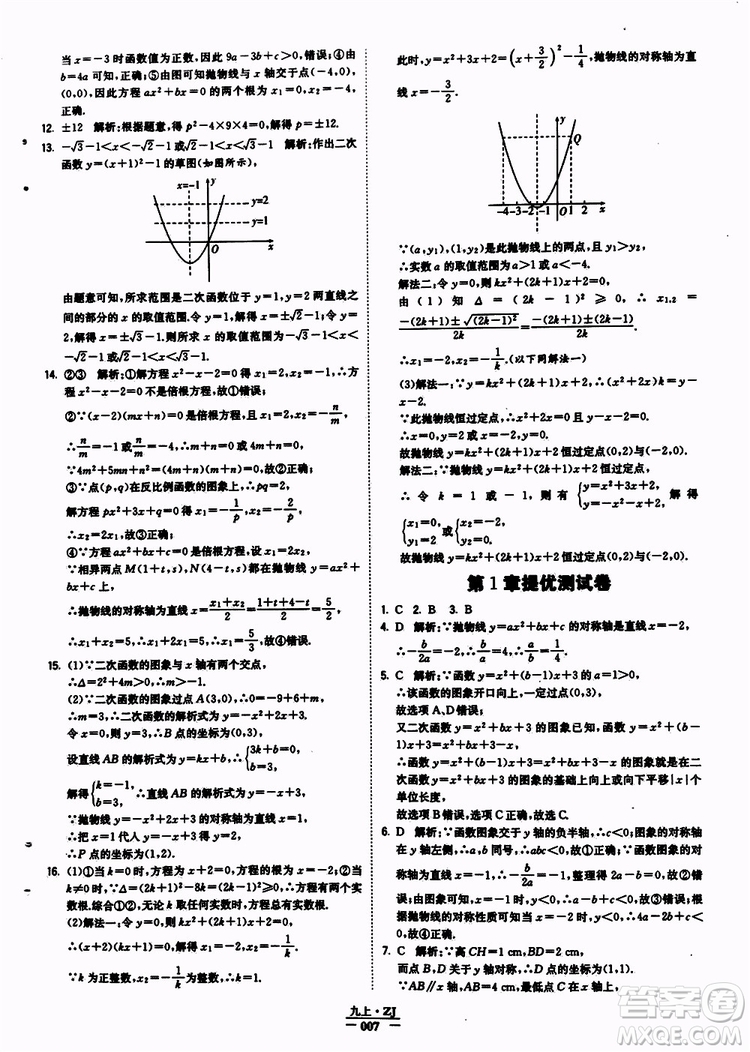 当 x=-3 时函数值为正数，因此 9a-3b+c>0，错误；④由
b=4a 可知，正确；⑤由图可知抛物线与 x 轴交于点(-4,0)，
(0,0)，因此方程 ax²+bx=0 的两个根为 x₁=0，x₂=-4，
正确．
12. ±12 解析：根据题意，得 p²-4×9×4=0，解得 p=±12．
13. -√3-1<x<-√2-1 或√2-1<x<√3-1 解析：作出二次
函数 y=(x+1)²-1 的草图(如图所示)，
x=-1 y
y=2
y=1
O x
由题意可知，所求范围是二次函数位于 y=1，y=2 两直线之
间的部分的 x 的取值范围．令 y=1，解得 x=-√2-1 或 x=
√2-1．令 y=2，解得 x=-√3-1 或 x=√3-1．则所求 x 的
取值范围为-√3-1<x<-√2-1 或√2-1<x<√3-1．
14. ②③ 解析：①解方程 x²-x-2=0，得 x₁=2，x₂=-1，∴方
程 x²-x-2=0 不是倍根方程，故①错误；
②∵(x-2)(mx+n)=0 是倍根方程，且 x₁=2，x₂=-n/m，
∴n/m=-1 或 n/m=-4，∴m+n=0 或 4m+n=0．
∵4m²+5mn+n²=(4m+n)(m+n)=0，故②正确；
③∵点(p,q)在反比例函数的图象上，∴pq=2，
解方程 px²+3x+q=0 得 x₁=-1/p，x₂=-2/p，
∴x₂=2x₁，故③正确；
④∵方程 ax²+bx+c=0 是倍根方程，∴设 x₁=2x₂．
∵相异两点 M(1+t,s)，N(4-t,s)都在抛物线 y=ax²+
bx+c 上，
∴抛物线的对称轴为直线 x=(x₁+x₂)/2=(1+t+4-t)/2=5/2，
∴x₁+x₂=5，∴x₁+2x₁=5，∴x₁=5/3，故④错误．
15. (1)∵二次函数的图象与 x 轴有两个交点，
∴Δ=2²+4m>0，∴m>-1．
(2)∵二次函数的图象过点 A(3,0)，∴0=-9+6+m，
∴m=3，∴二次函数的解析式为 y=-x²+2x+3．
令 x=0，则 y=3，∴点 B 的坐标为(0,3)．
设直线 AB 的解析式为 y=kx+b，∴{3k+b=0，b=3，
解得{k=-1，b=3．
∴直线 AB 的解析式为 y=-x+3．
∵抛物线 y=-x²+2x+3 的对称轴为直线 x=1，
∴把 x=1 代入 y=-x+3，得 y=2，
∴P 点的坐标为(1,2)．
16. (1)①当 k=0 时，方程为 x+2=0，方程的根为 x=-2；②当
k≠0 时，∵Δ=(2k+1)²-4k×2=(2k-1)²≥0，方程有实
数根．综合①②，无论 k 取任何实数，方程总有实数根．
(2)解法一：令 y=0，则 kx²+(2k+1)x+2=0，
∴(x+2)(kx+1)=0，∴x₁=-2，x₂=-1/k．
∵k 为正整数，x₂=-1/k 为整数，∴k=1．
此时，y=x²+3x+2=(x+3/2)²-1/4，抛物线的对称轴为直
线 x=-3/2．
y
Q
-4-3-2-1 O 1 2 x
∵(a,y₁)，(1,y₂)是此抛物线上的两点，且 y₁>y₂，
∴实数 a 的取值范围为 a>1 或 a<-4．
解法二：令 y=0，则 kx²+(2k+1)x+2=0．
由 (1) 知 Δ = (2k - 1)² ≥ 0，∴ x₁,₂ =
(-(2k+1)±√(2k-1)²)/2k=(-(2k+1)±(2k-1))/2k
∴x₁=-2，x₂=-1/k．(以下同解法一)
(3)解法一：令 x²+2x=0，则 x=0 或
x=-2．
∵此抛物线恒过定点，∴当 x=0 时，y=2；当 x=-2 时，y=0，
故抛物线 y=kx²+(2k+1)x+2 恒过定点(0,2)与(-2,0)．
解法二：∵抛物线 y=kx²+(2k+1)x+2 恒过定点，
∴ 令 k=-1 或 k=1，则 有{y=x²+3x+2，y=-x²-x+2，解得
{x₁=0，y₁=2 或{x₂=-2，y₂=0．
故抛物线 y=kx²+(2k+1)x+2 恒过定点(0,2)与(-2,0)．
第 1 章提优测试卷
1. C 2. B 3. B
4. D 解析：∵抛物线 y=ax²+bx+c 的对称轴为直线 x=2，
∴-b/2a=2，∴a/b=-1/4．
5. C 解析：∵a=1>0，c=3，
∴该函数的图象开口向上，过定点(0,3)，
故选项A、D错误；
又二次函数 y=x²+bx+3 的图象已知，函数 y=x²+(b-
1)x+3=x²+bx+3-x，
∴函数 y=x²+(b-1)x+3 的图象是在二次函数 y=x²+
bx+3 的图象的基础上向右下平移|x|个
单位长度，
故选项B错误，选项C正确．
6. D 解析：∵函数图象交于 y 轴的负半轴，∴c<0；图象的对称轴
在 y 轴左侧，∴a，b 同号，∴abc<0，故①错误；∵图象的对称轴
为直线 x=-1，∴-b/2a=-1，整理得 2a-b=0，故②正确；
由图象可知，当 x=1 时，y<0，∴a+b+c<0，故③错误；由抛
物线的对称性质可知当 x=-3 时，y<0，∴9a-3b+c<0，
故④正确．
7. C 解析：∵高 CH=1 cm，BD=2 cm，
而点 B、D 关于 y 轴对称，∴D 点的横坐标为 1．
∵AB∥x 轴，AB=4 cm，
九上·ZJ
007
答案圈